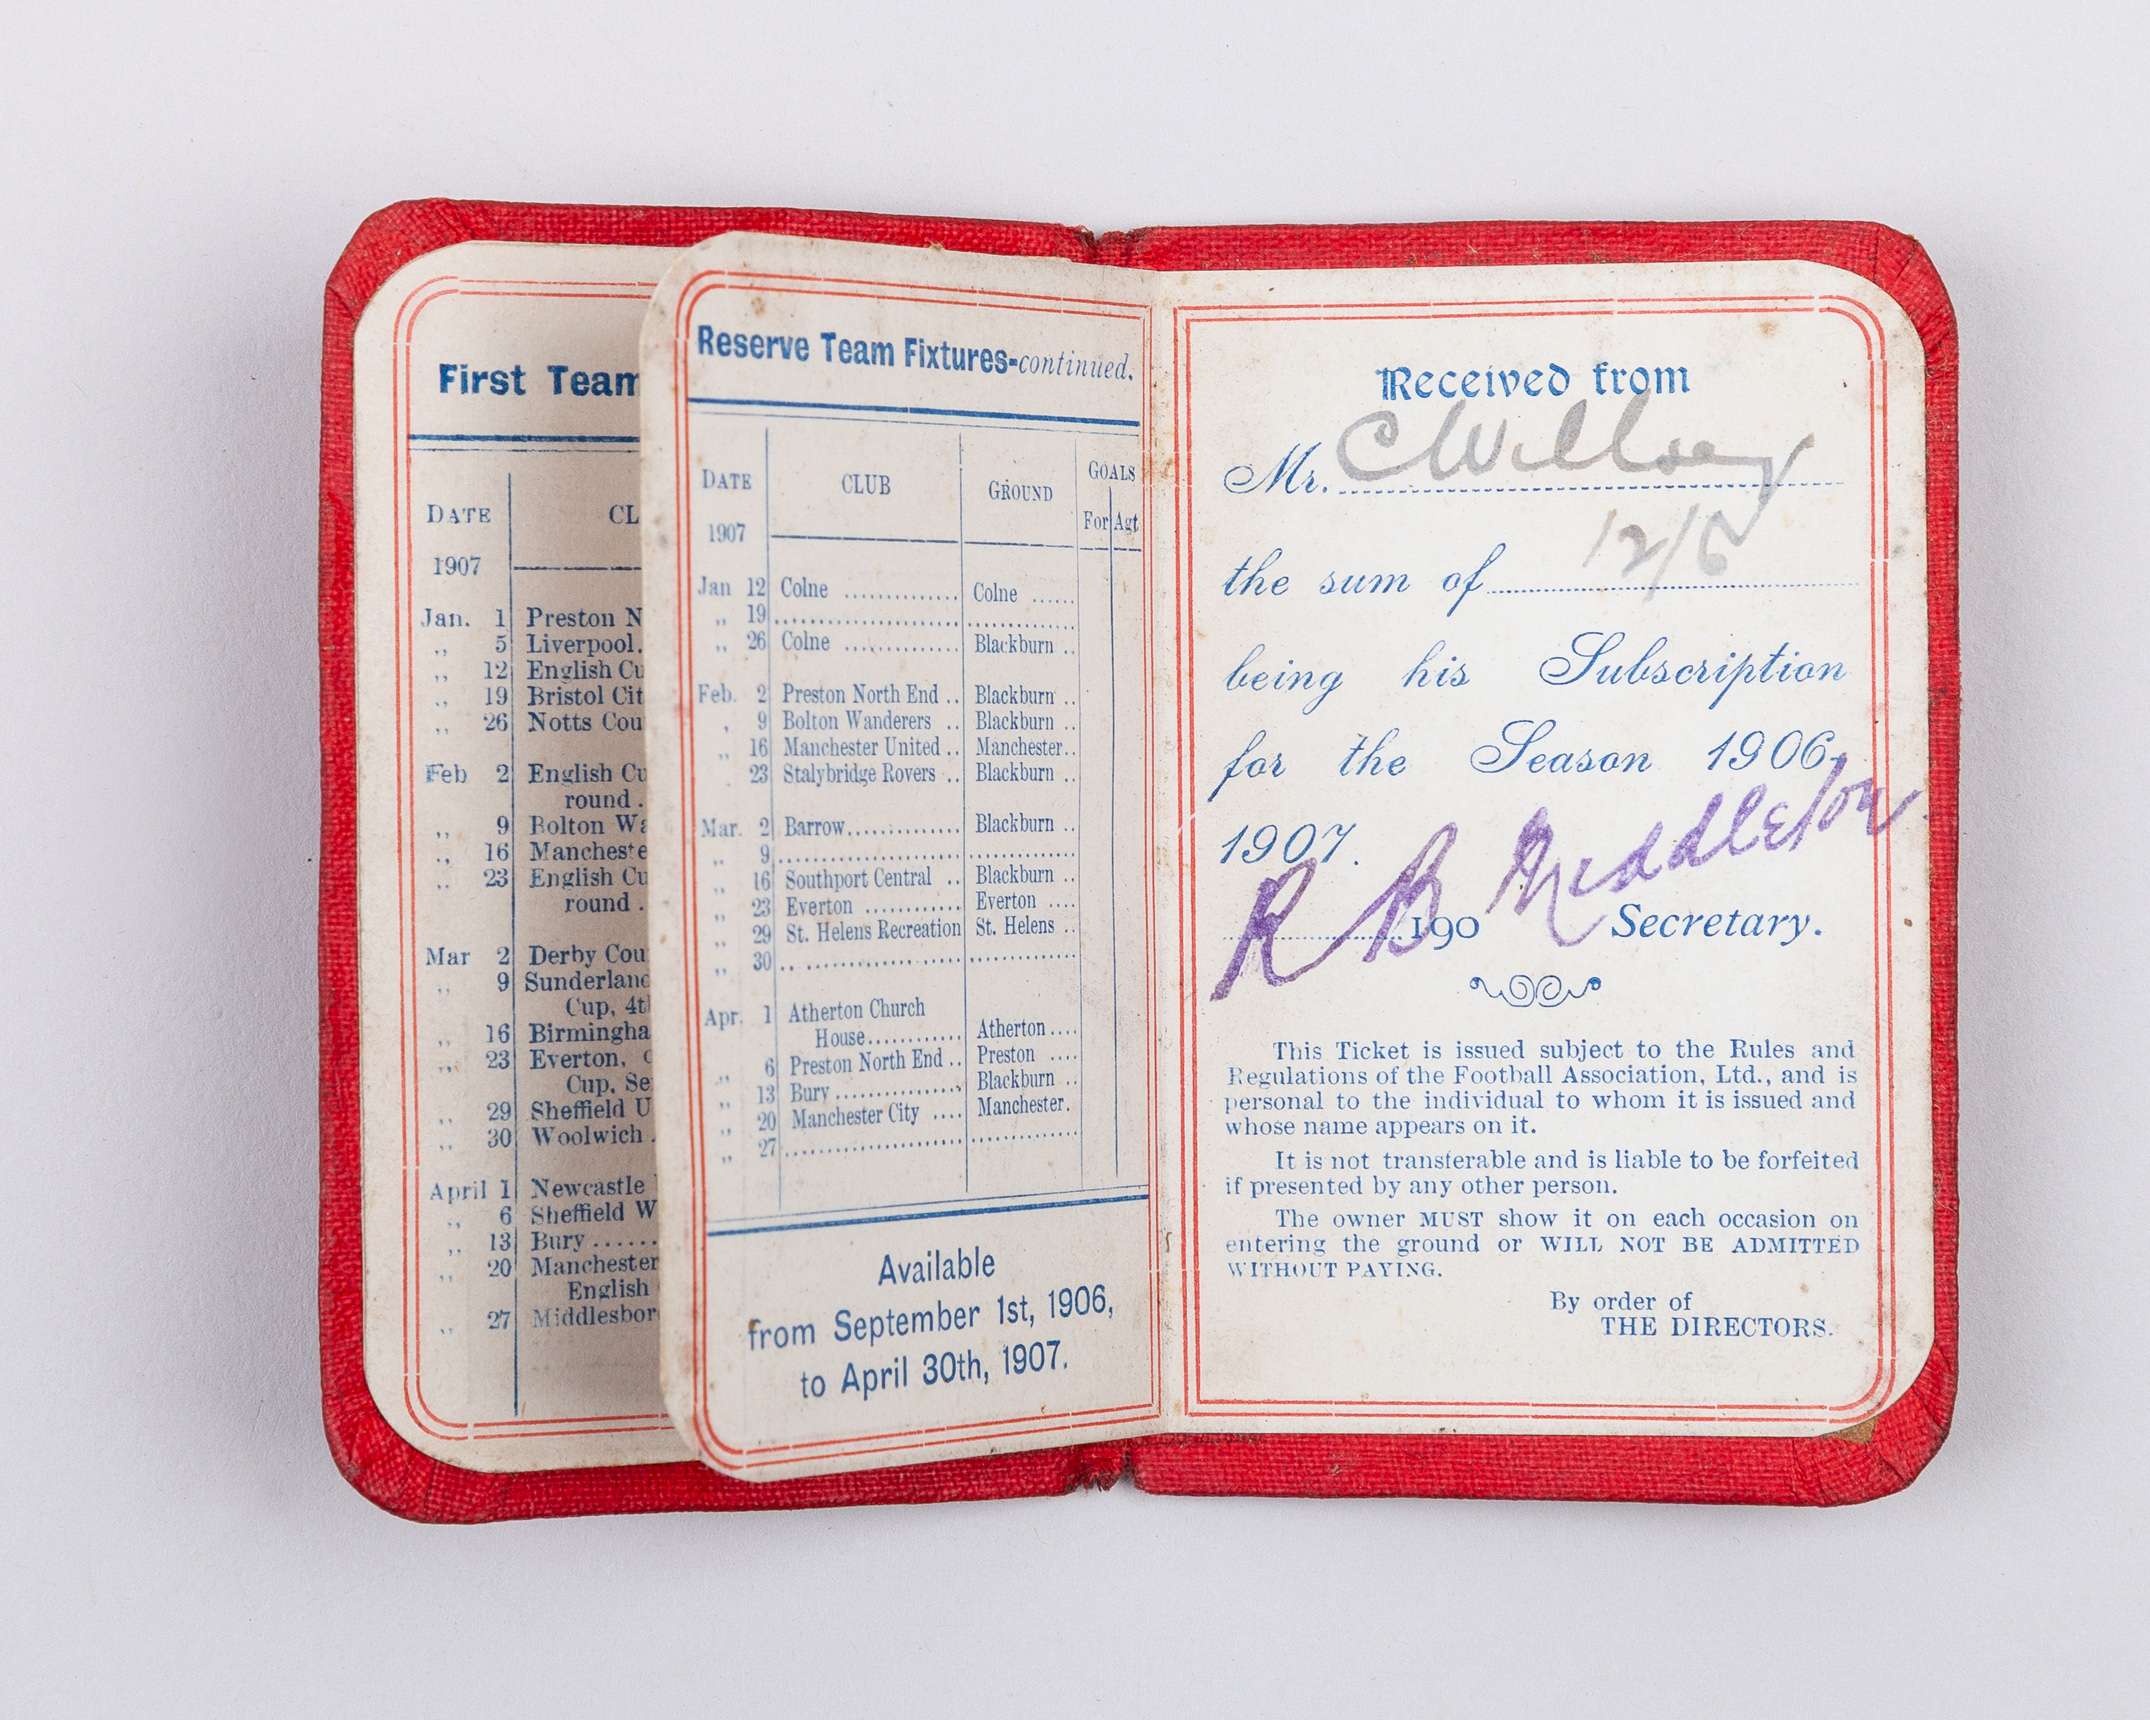 First Team
DATE CL
1907
Jan. 1 Preston N
,, 5 Liverpool.
,, 12 English Cu
,, 19 Bristol Cit
,, 26 Notts Cou
Feb 2 English Cu
round .
,, 9 Bolton Wa
,, 16 Mancheste
,, 23 English Cu
round .
Mar 2 Derby Cou
,, 9 Sunderland
Cup, 4th
,, 16 Birmingha
,, 23 Everton,
Cup, Se
,, 29 Sheffield U
,, 30 Woolwich .
April 1 Newcastle
,, 6 Sheffield W
,, 13 Bury ......
,, 20 Manchester
English
,, 27 Middlesboro
Reserve Team Fixtures-continued.
DATE CLUB GROUND GOALS
1907 For Agt
Jan 12 Colne .............. Colne ......
,, 19 ....................... .............
,, 26 Colne .............. Blackburn ..
Feb. 2 Preston North End .. Blackburn ..
, 9 Bolton Wanderers .. Blackburn ..
,, 16 Manchester United .. Manchester..
23 Stalybridge Rovers .. Blackburn ..
Mar. 2 Barrow.............. Blackburn ..
,, 9 ....................... .............
,, 16 Southport Central .. Blackburn ..
,, 23 Everton ............ Everton ....
,, 29 St. Helens Recreation St. Helens ..
,, 30 ....................... .............
Apr. 1 Atherton Church
House............ Atherton....
,, 6 Preston North End .. Preston ....
,, 13 Bury ................ Blackburn ..
,, 20 Manchester City .... Manchester.
,, 27 ....................... .............
Available
from September 1st, 1906,
to April 30th, 1907.
Received from
Mr. C
the sum of 12/6
being his Subscription
for the Season 1906-
1907.
R B Middleton
190 Secretary.
This Ticket is issued subject to the Rules and
Regulations of the Football Association, Ltd., and is
personal to the individual to whom it is issued and
whose name appears on it.
It is not transferable and is liable to be forfeited
if presented by any other person.
The owner MUST show it on each occasion on
entering the ground or WILL NOT BE ADMITTED
WITHOUT PAYING.
By order of
THE DIRECTORS.